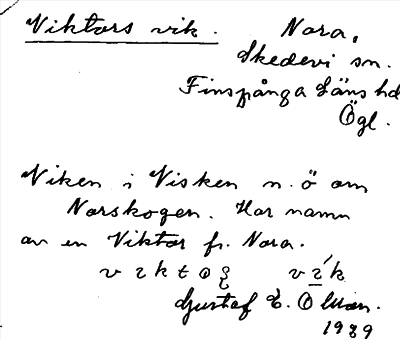 Viktors vik. Nora,
Skedevi sn.
Finspånga Läns hd
Ögl.
Viken i Visken n.ö om
Norskogen. Har namn
av en Viktor fr. Nora.
Gustaf E.
1939